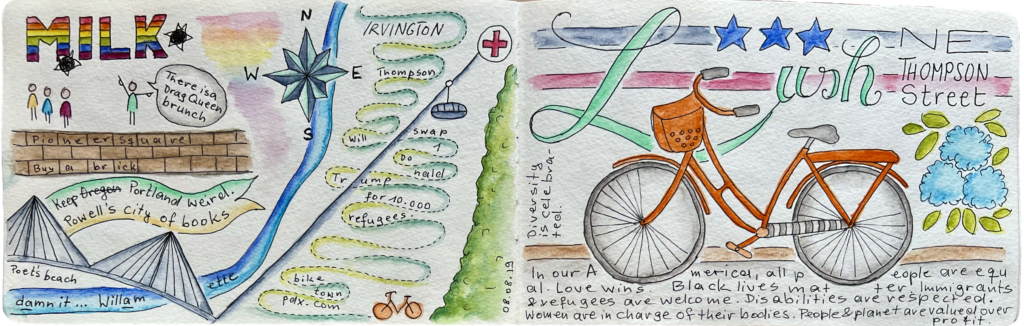 MILK
There is a
Drag Queen
brunch
Pioneer Square
Buy a brick
Keep Oregon Portland weird.
Powell's city of books
Poet's beach
damn it... Willam ette
N
W E
S
IRVINGTON
Thompson
Will swap
1
Do nald
Tr ump
for 10.000
refugees.
bike
town
pdx.com
08.08.19
Lush
NE
THOMPSON
Street
Diversity
is celebra-
ted.
In our A merica, all p eople are equ
al. Love wins. Black lives mat ter! Immigrants
& refugees are welcome. Disabilities are respected.
Women are in charge of their bodies. People & planet are valued over
profit.